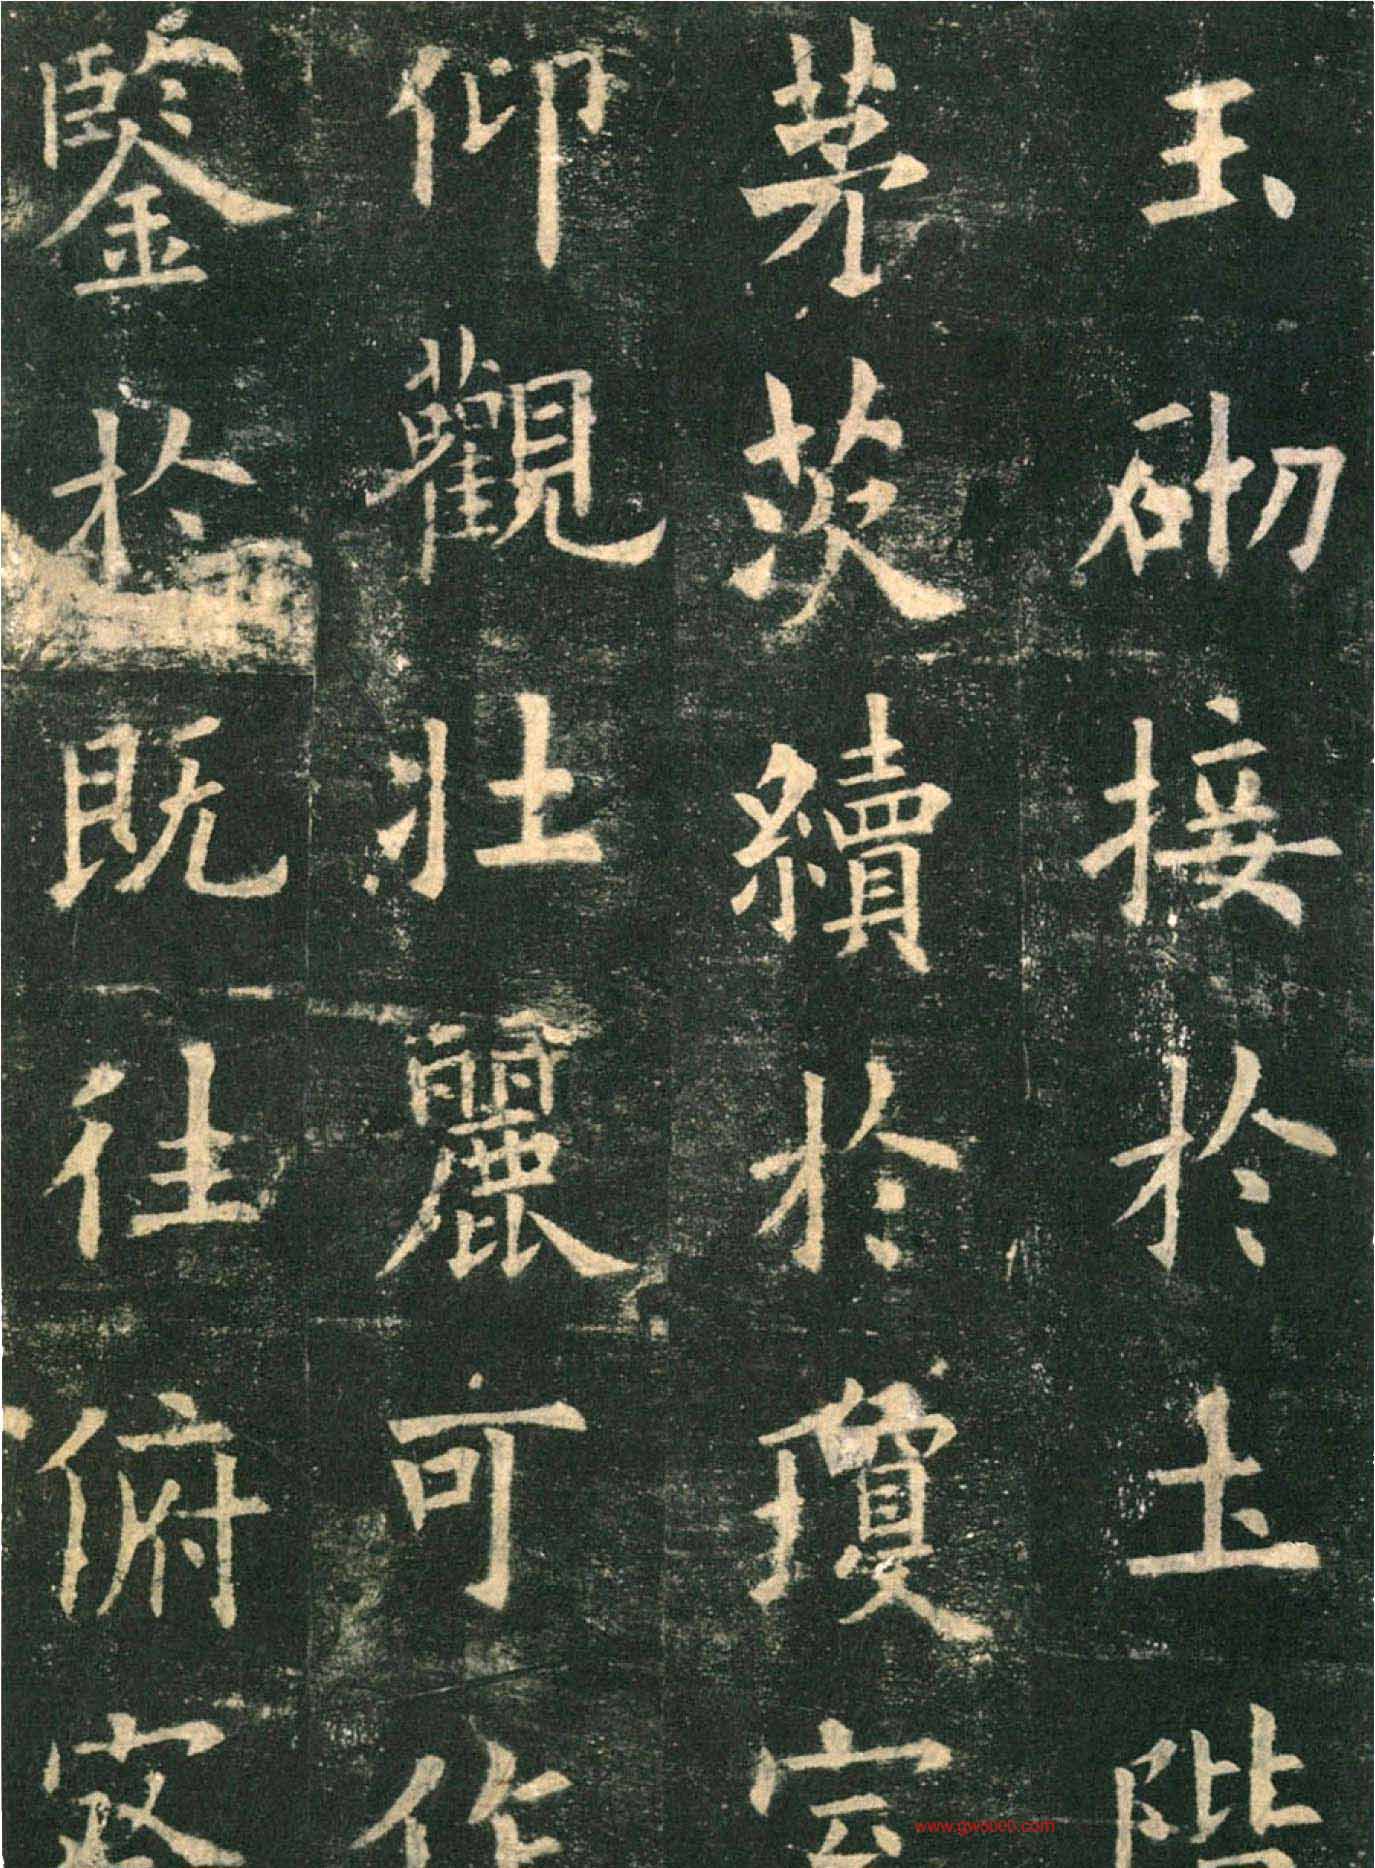 玉砌接於土階
茅茨續於瓊室
仰觀壯麗可作
鑒於既往俯察
www.gw5000.com